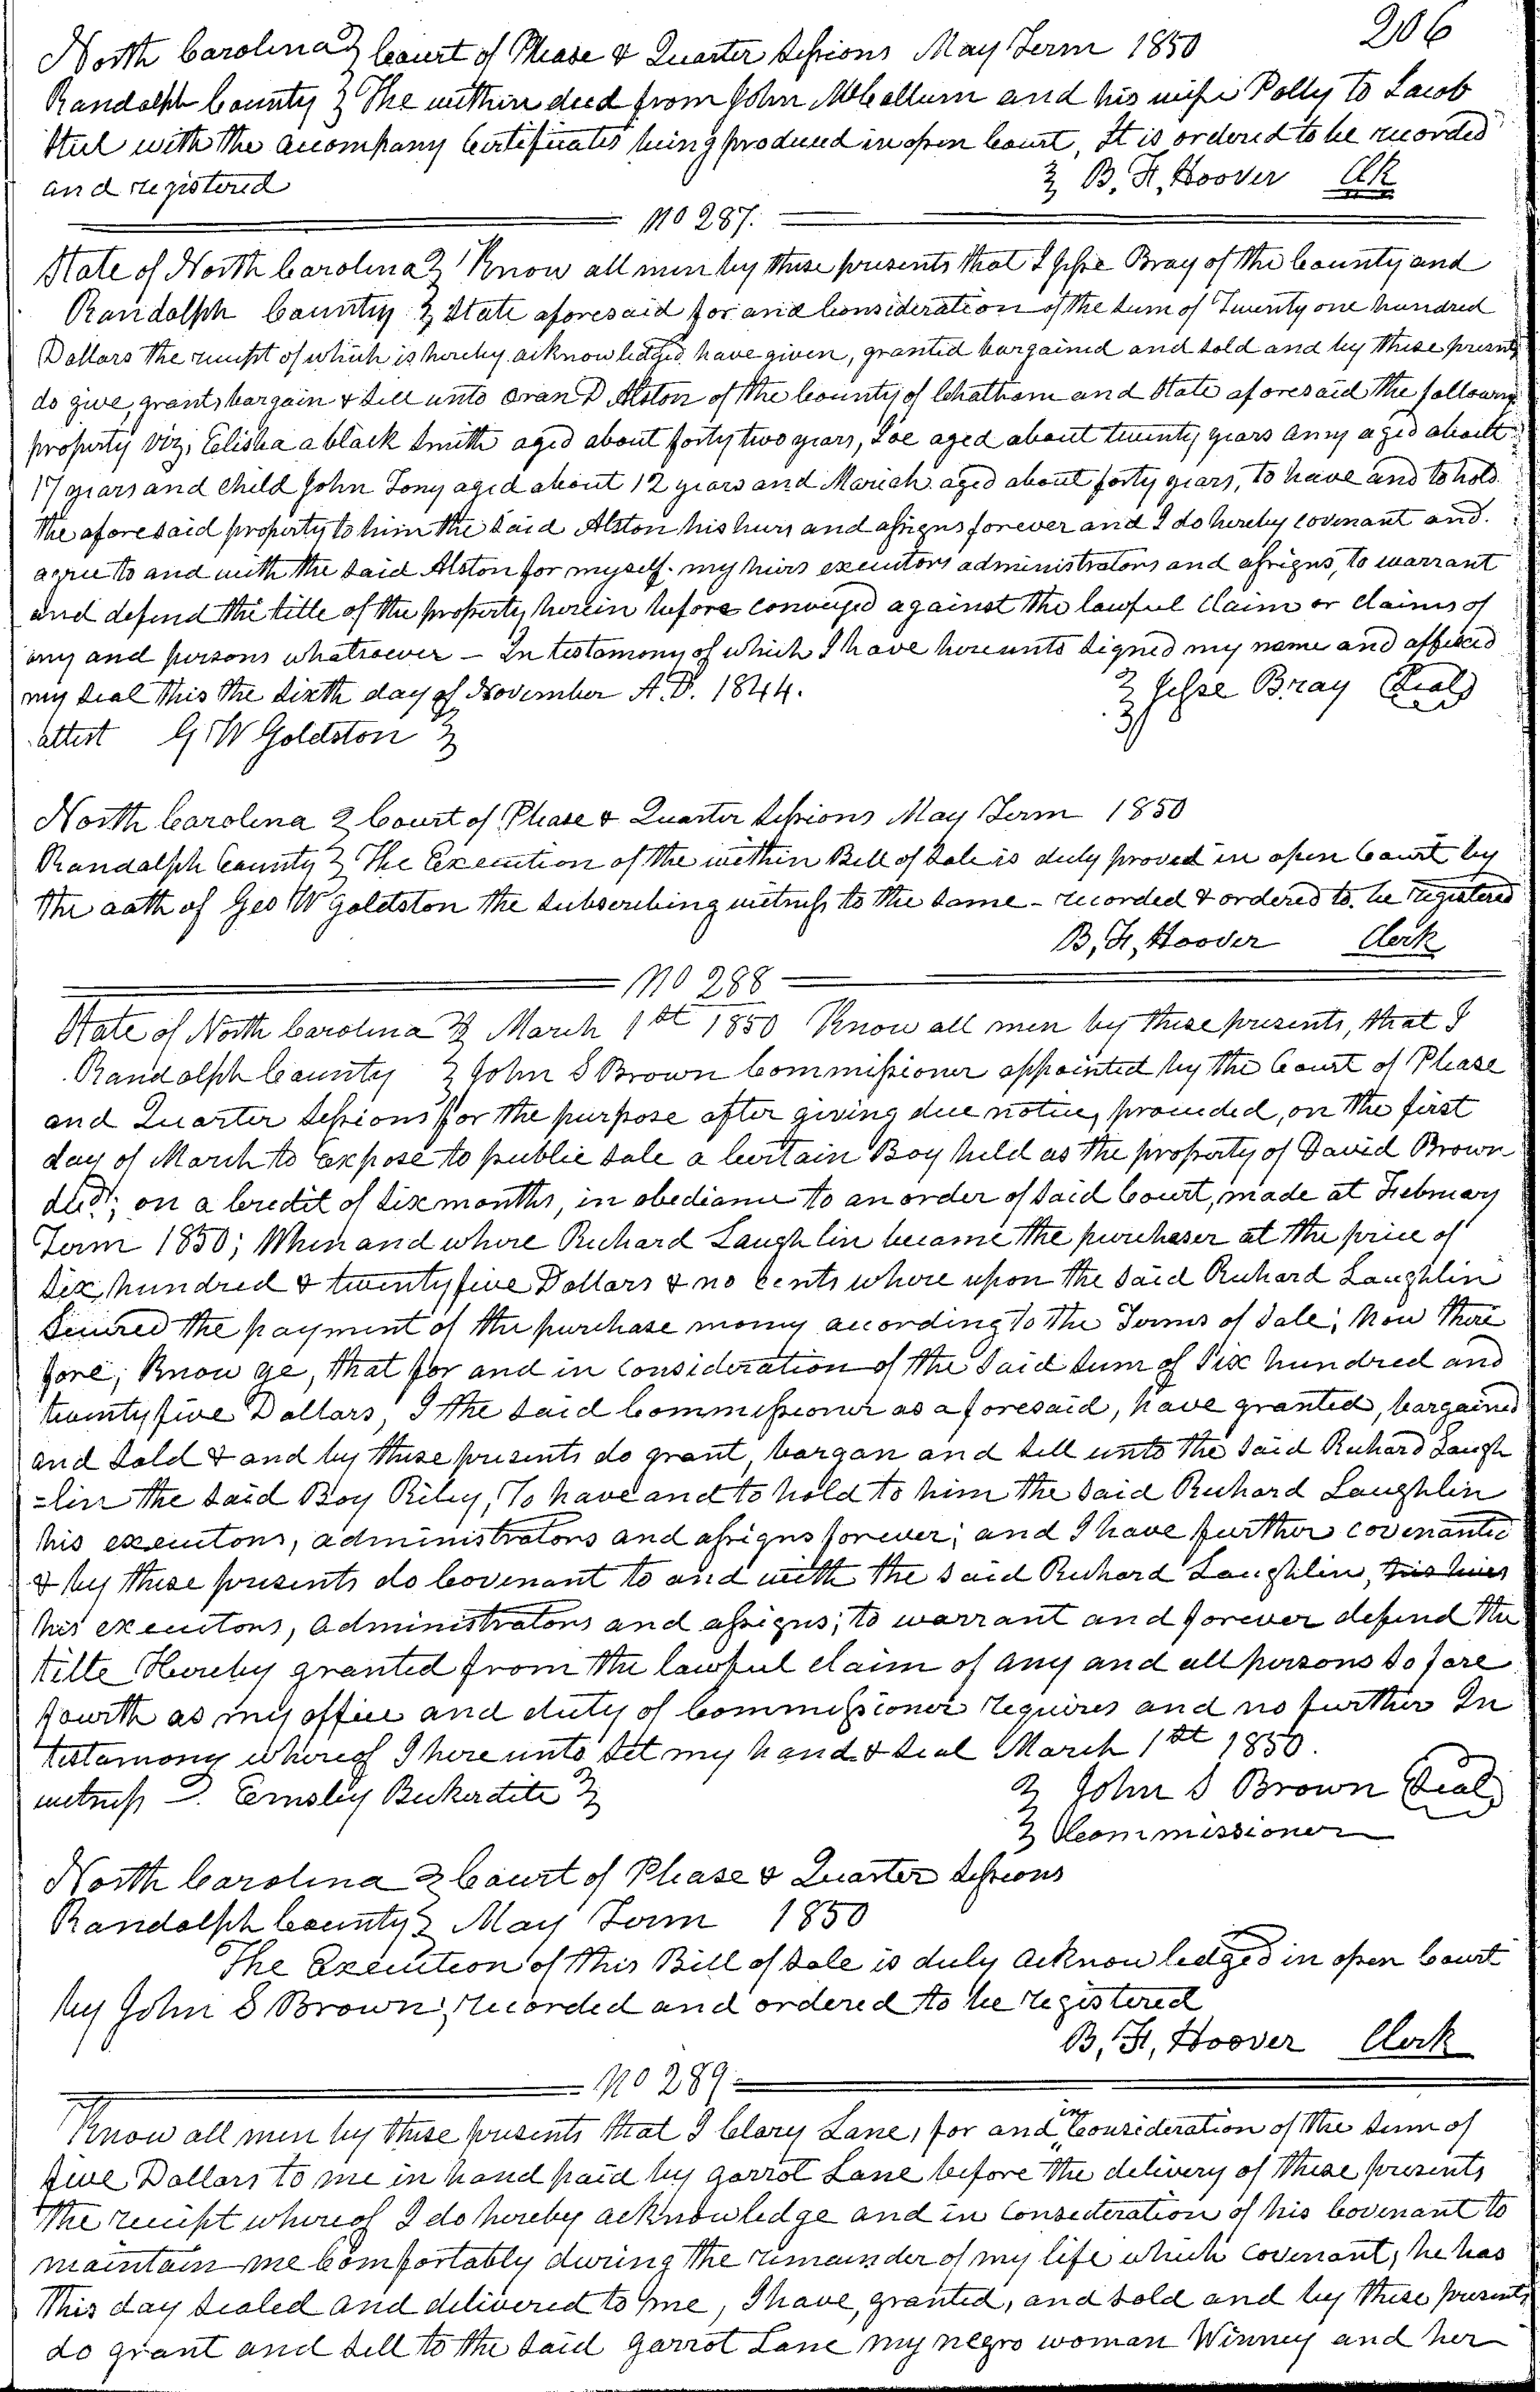 206
North Carolina } Court of Please & Quarter Sessions May Term 1850
Randolph County } The within deed from John McCallum and his wife Polly to Jacob
Stul with the acompany Certificates being produced in open Court, It is ordered to be recorded
and registered } B. F. Hoover Clk
No 287.
State of North Carolina } Know all men by these presents that I Jesse Bray of the County and
Randolph County } State aforesaid for and Consideration of the sum of Twenty one hundred
Dollars the receipt of which is hereby acknowledged have given, granted bargained and sold and by these presents
do give, grant, bargain & sell unto Oran D Alston of the County of Chatham and State aforesaid the following
property viz; Elisha a black Smith aged about forty two years, Joe aged about twenty years Amy aged about
17 years and child John Tony aged about 12 years and Mariah aged about forty years, to have and to hold
the aforesaid property to him the said Alston his heirs and assigns forever and I do hereby covenant and.
agree to and with the said Alston for myself. my heirs executors administrators and assigns, to warrant
and defend the title of the property herein before conveyed against the lawful claim or claims of
any and persons whatsoever – In testamony of which I have hereunto signed my name and affixed
my seal this the sixth day of November A. D. 1844.
} Jesse Bray (Seal)
attest G. W Goldston }
North Carolina } Court of Please & Quarter Sessions May Term 1850
Randolph County } The Execution of the within Bill of Sale is duly proved in open Court by
the oath of Geo W Goldston the subscribing witness to the same – recorded & ordered to be registered
B. F. Hoover Clerk
No 288
State of North Carolina } March 1st 1850 Know all men by these presents, that I
Randolph County } John S Brown Commissioner appointed by the Court of Please
and Quarter Sessions for the purpose after giving due notice, proceeded, on the first
day of March to expose to public sale a certain Boy held as the property of David Brown
decd; on a credit of six months, in obediance to an order of said Court, made at February
Term 1850; When and where Richard Laughlin became the purchaser at the price of
six hundred & twenty five Dollars & no cents where upon the said Richard Laughlin
Secured the payment of the purchase money according to the Terms of Sale; Now there
fore, Know ye, that for and in consideration of the said sum of Six hundred and
twenty five Dollars, I the said Commissioner as aforesaid, have granted, bargained
and sold & and by these presents do grant, bargan and sell unto the said Richard Laugh
=lin the said Boy Riley, To have and to hold to him the said Richard Laughlin
his executors, administrators and assigns forever; and I have further covenanted
& by these presents do Covenant to and with the said Richard Laughlin, his heires
his executors, administrators and assigns; to warrant and forever defend the
title Hereby granted from the lawful claim of any and all persons so fare
fourth as my office and duty of Commissioner requires and no further In
testamony whereof I here unto set my hand & seal March 1st 1850.
witness D. Emsley Beckerdite }
} John S Brown (Seal)
} Commissioner
North Carolina } Court of Please & Quarter Sessions
Randolph County } May Term 1850
The Execution of this Bill of Sale is duly acknowledged in open Court
by John S Brown, recorded and ordered to be registered
B. F. Hoover Clerk
No 289.
Know all men by these presents that I Clary Lane, for and in Consideration of the sum of
five Dollars to me in hand paid by Garrot Lane before the delivery of these presents
the receipt whereof I do hereby acknowledge and in consideration of his Covenant to
maintain me comfortably during the remainder of my life which covenant, he has
this day sealed and delivered to me, I have, granted, and sold and by these presents
do grant and sell to the said Garrot Lane my negro woman Winney and her